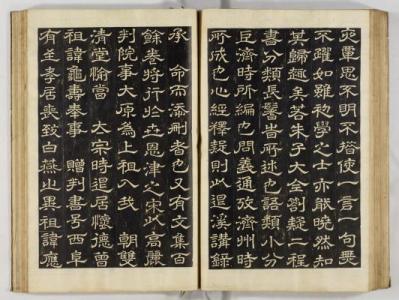 覃思不明不措使一言一句無
不躍如雖初學之士亦能曉然知
其歸趣矣若朱子大全劄疑二程
書分類長鬐旹所述也語類小分
巨濟時所編也問義通攷濟州時
所成也心經釋疑則以退溪講錄
承 命而添刪者也又有文集百
餘卷將行於世恩津之宋以高麗
判院事大原為上祖入我 朝雙
清堂愉當 太宗時退居懷德曾
祖諱龜壽奉事 贈判書号西阜
有至孝居喪致白燕之異祖諱應